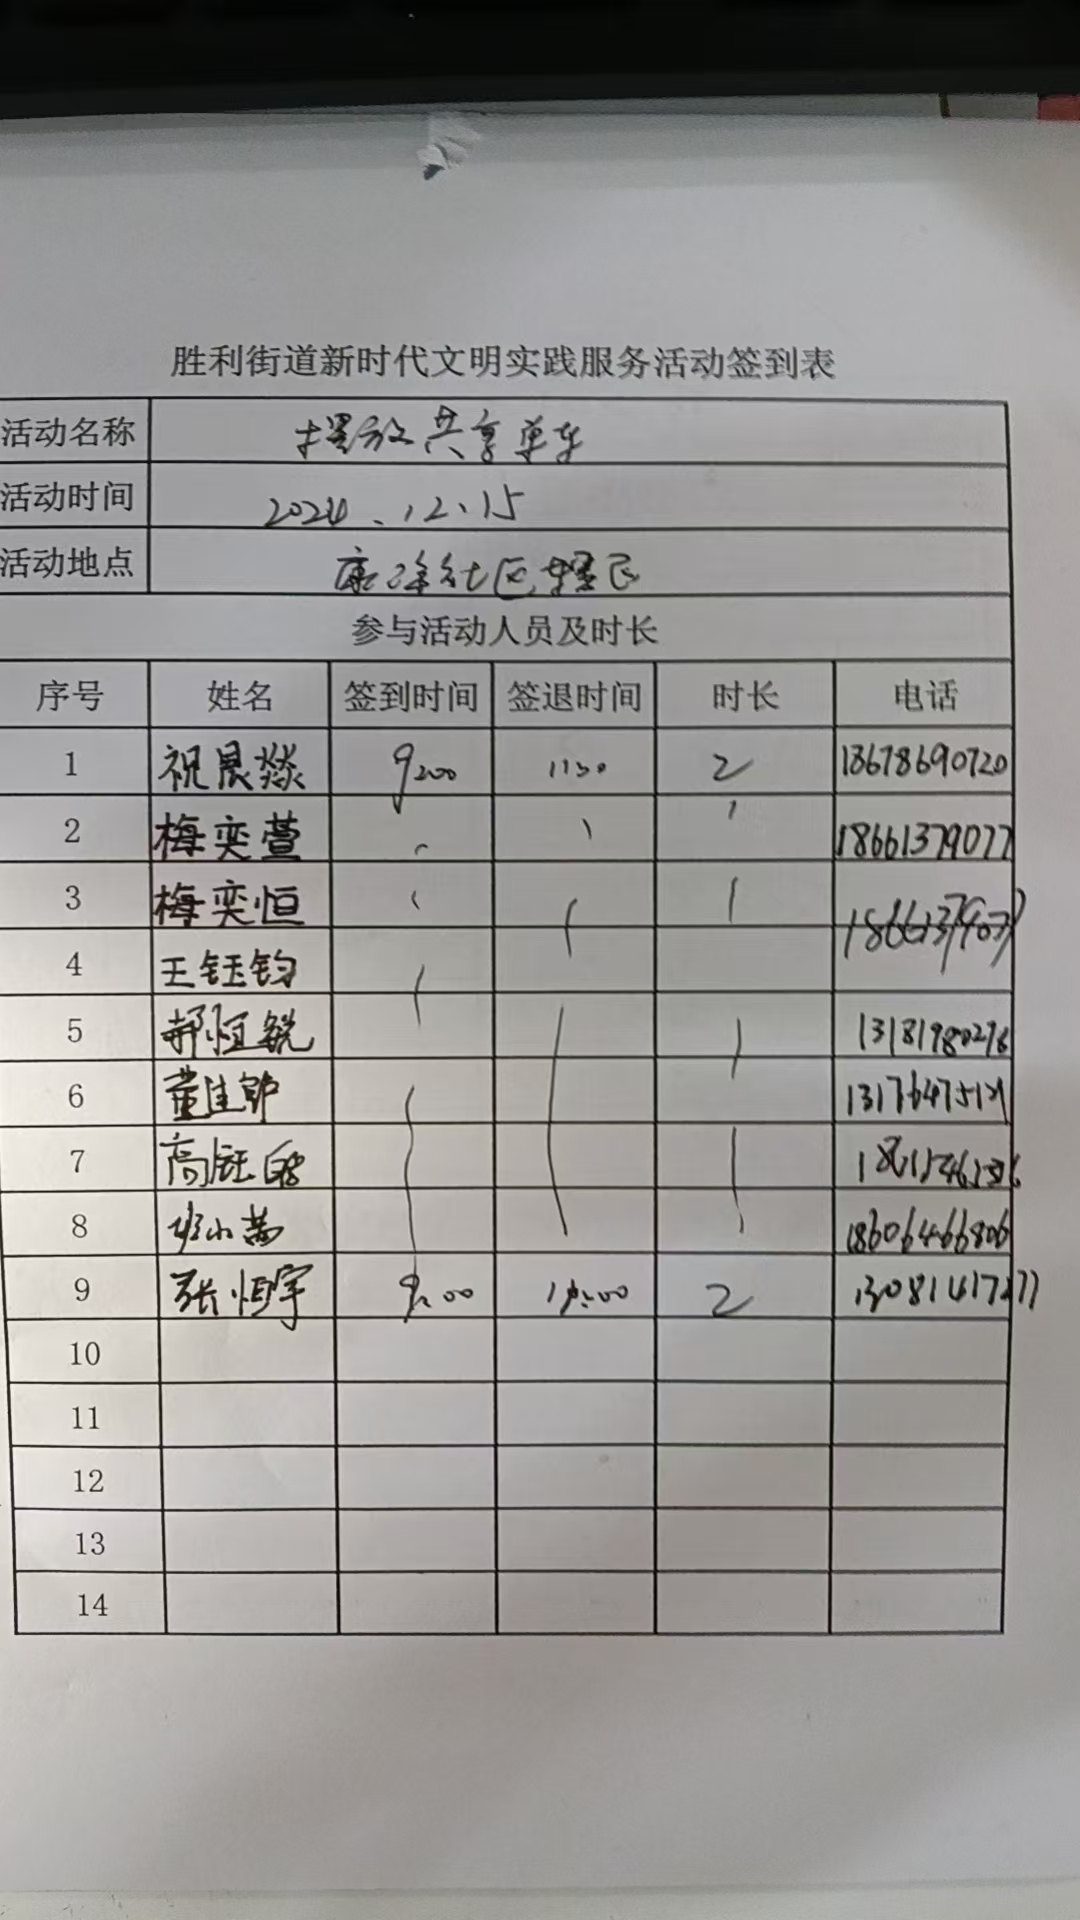 胜利街道新时代文明实践服务活动签到表
活动名称 摆放共享单车
活动时间 2024.12.15
活动地点 康洛社区辖区
参与活动人员及时长
序号 姓名 签到时间 签退时间 时长 电话
1 祝晨燚 9:00 11:00 2 13678690720
2 梅奕萱 18661379077
3 梅奕恒 18661379077
4 王钰钧
5 郝恒锐 13181980276
6 董佳
7 高钰
8 班小茜 18606466806
9 张恒宇 9:00 2
10
11
12
13
14